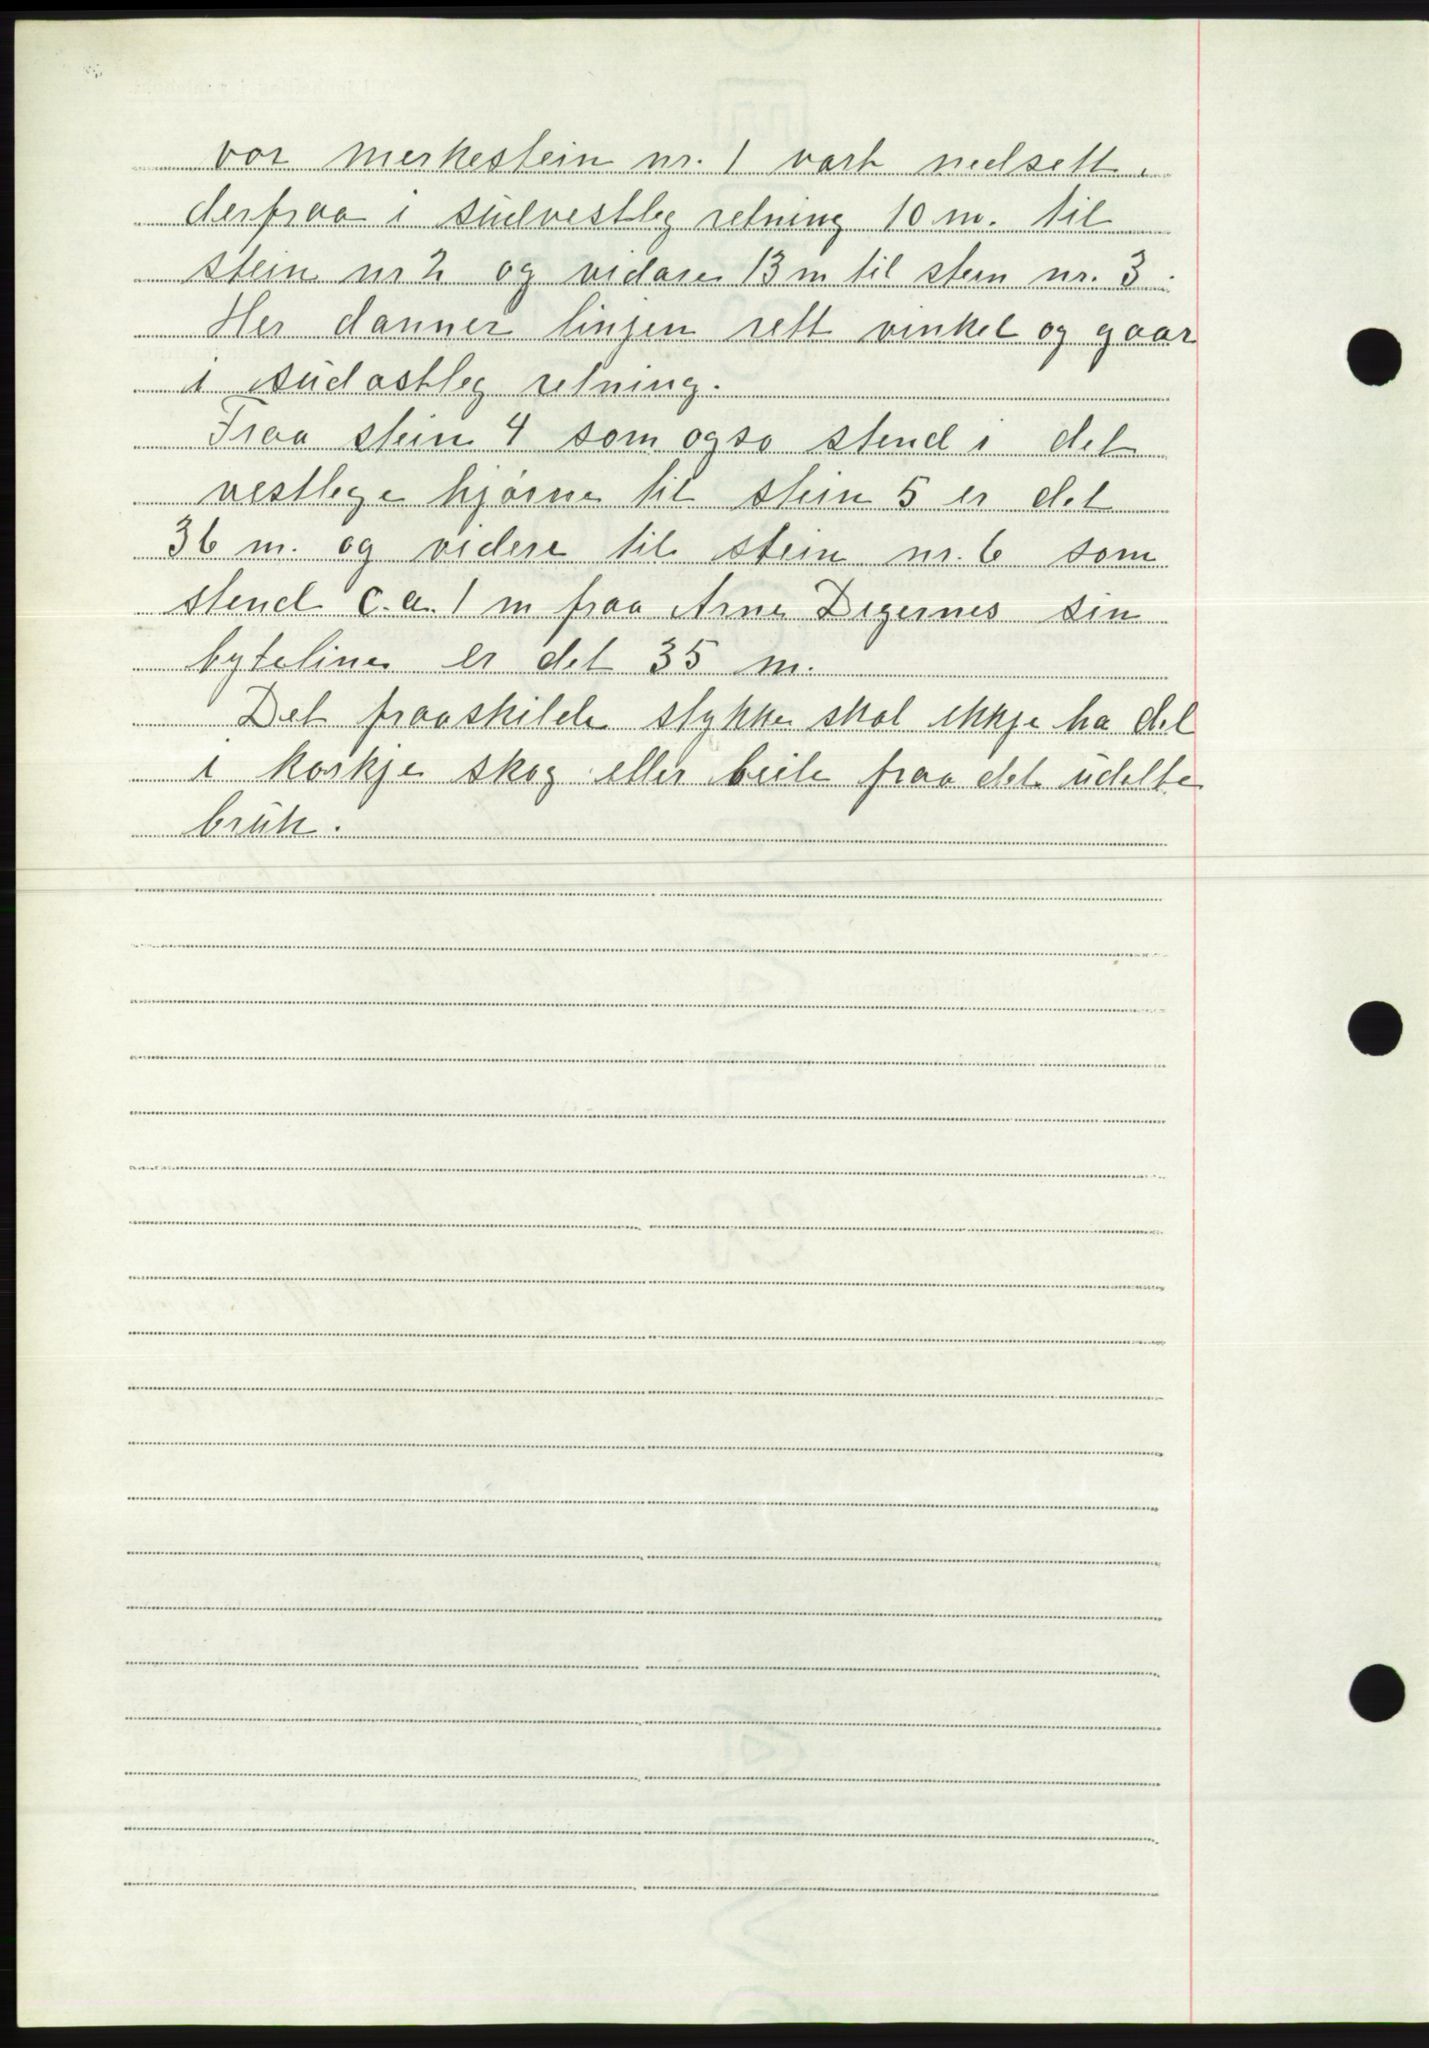 vor merkestein nr. 1 vart nedsett.
derfraa i südvestleg retning 10 m. til
stein nr 2 og vidare 13 m til sten nr. 3.
Her danner linjen rett vinkel og gaar
i südostleg retning.
Fraa stein 4 som ogso stend i det
vestlege hjörne til stein 5 er det
36 m. og videre til stein nr. 6 som
stend c.a. 1 m fraa Arne Degernes sin
byteline er det 35 m.
Det fraaskilde stykke skal ikkje ha del
i korkje skog eller beite fraa det üdelte
brük.